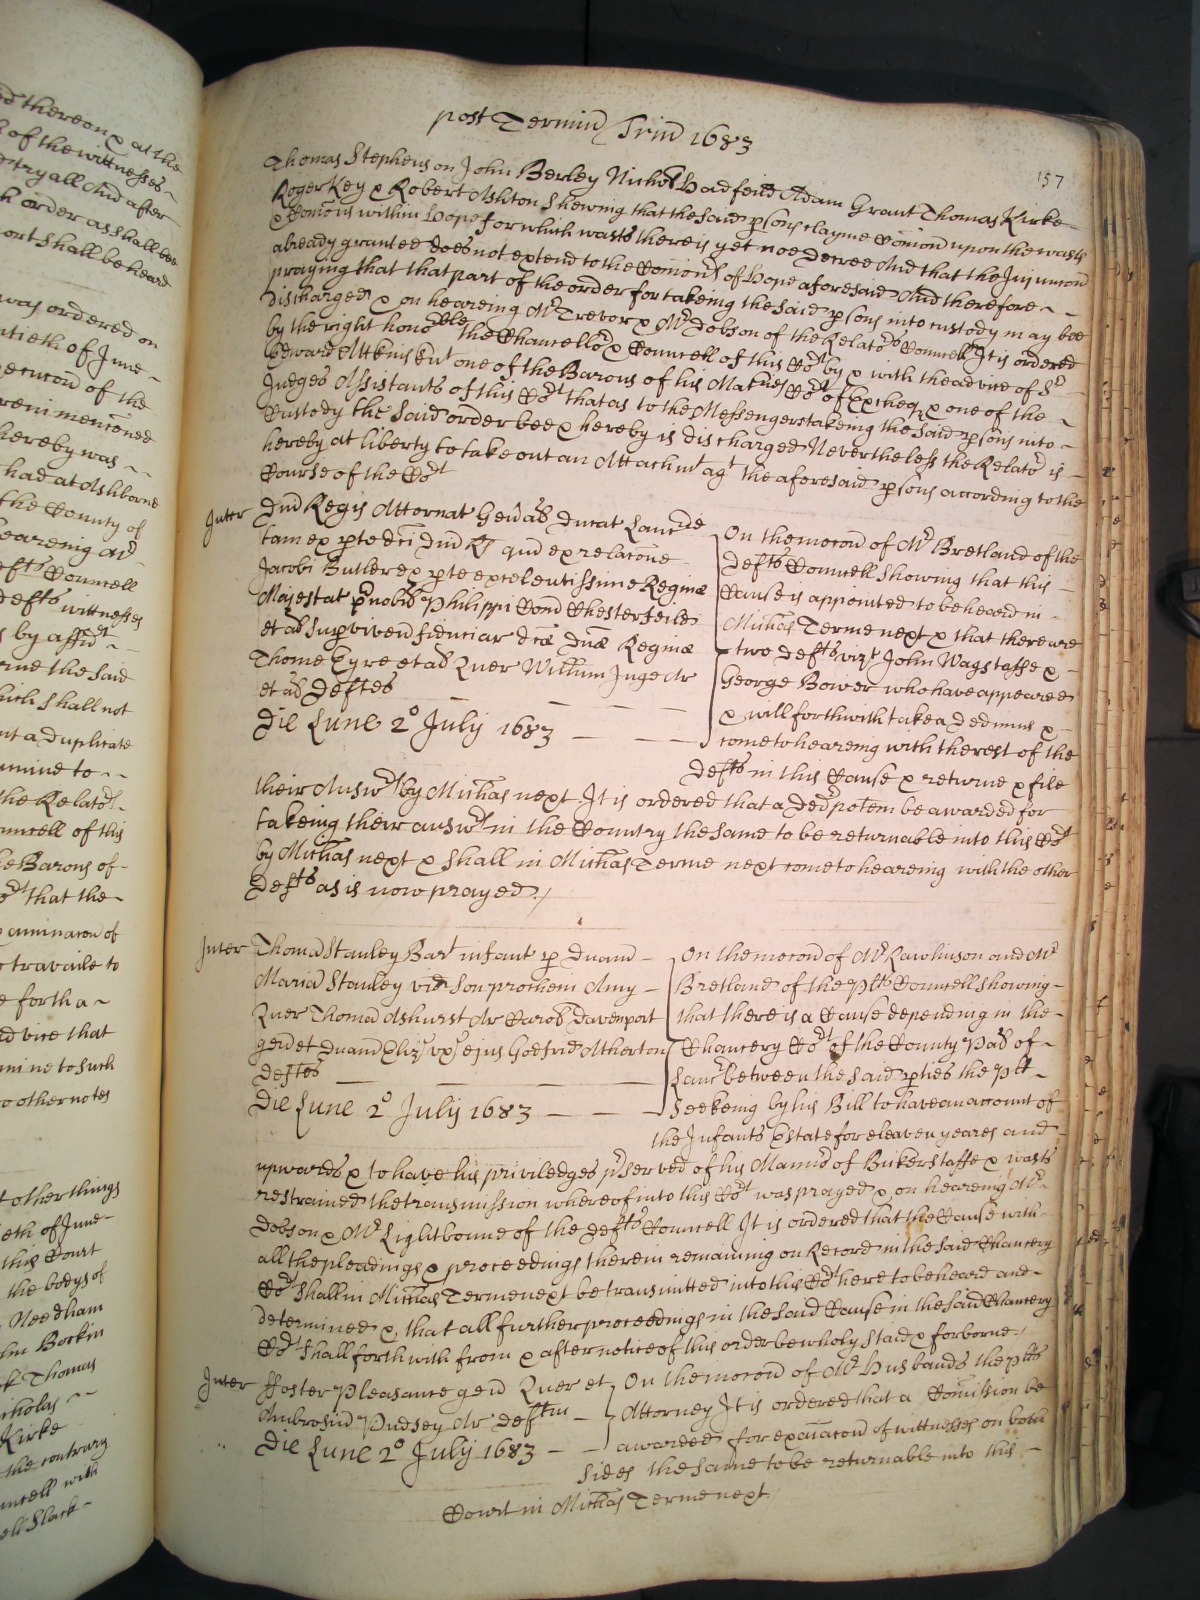 post Terminū Trin̄ 1683
157
Thomas Stephenson John Berley Nichōs Hadfeild Adam Grant Thomas Kirke
Roger Key & Robert Ashton Shewing that the said psons clayme Cōmon upon the wasts
& Cōmons within Hope for which wasts there is yet noe Decree And that the Injuncc̄on
already granted does not extend to the Cōmons of Hope aforesaid And therefore
praying that that part of the order for takeing the said psons into custody may bee
discharged & on heareing Mr Trevor & Mr Dobson of the Relatōrs Councell It is ordered
by the right honoble the Chancellor & Councell of this Cort by & with the advice of Sr
Edward Attkins Knt one of the Barons of his Maties Cort of Excheqr & one of the
Judges Assistants of this Cort that as to the Messengers takeing the said psons into
Custody the said order bee & hereby is discharged Nevertheless the Relatōr is
hereby at liberty to take out an Attachmt agt the aforesaid psons according to the
Course of the Cort
Inter Dn̄i Regis Attornat Gen̄al Ducat Lancr
tam ex pte dc̄i Dn̄i R qn̄d ex relac̄one
Jacobi Butler ex pte excelentissime Regine
Majestat p̄nobil Philippi Com̄ Chesterfeild
et al supviven̄ fiduciar dc̄æ Dn̄æ Reginæ
Thome Eyre et al Quer Willm̄ Inge Ar
et al Deftes
Die Lune 2o July 1683
On the moc̄on of Mr Bretland of the
Defts Councell Showing that this
Cause is appointed to be heard in
Michās Terme next & that there are
two Defts vizt John Wagstaffe &
George Bower who have appeared
& will forthwith take a Dedimus &
come to heareing with the rest of the
Defts in this Cause & returne & file
their Answrs by Michās next It is ordered that a Ded potem be awarded for
takeing their answrs in the Country the same to be returnable into this Cort
by Michās next & shall in Michās Terme next come to heareing with the other
Defts as is now prayed
Inter Thomā Stanley Bart infant p Dnam̄
Mariā Stanley vid Son prochein Amy
Quer Thomā Ashurst Ar Carol Davenport
gen̄ et Dnam̄ Eliz ux ejus Godfrid Atherton
Deftes
Die Lune 2o July 1683
On the moc̄on of Mr Rawlinson and Mr
Bretland of the Plts Councell showing
that there is a Cause depending in the
Chancery Cort of the County Pal of
Lancr between the said pties the Plt
Seekeing by his Bill to have an account of
the Infants Estate for eleaven yeares and
upwards & to have his priviledges pserved of his Mann̄rs of Bickerstaffe & wasts
restrained the transmission whereof into this Cort was prayed & on heareing Mr
Dobson & Mr Lightboune of the Defts Councell It is ordered that the Cause with
all the pleadings & proceedings therein remaining on Record in the said Chancery
Cort shall in Michās Terme next be transmitted into this Cort here to be heard and
determined & that all further proceedings in the said Cause in the said Chancery
Cort shall forthwith from & after notice of this order be wholy staid & forborne
Inter ffoster Pleasance gen̄ Quer et
Ambrosiū Pudsey Ar Deftm
Die Lune 2o July 1683
On the moc̄on of Mr Husbands the Plts
Attorney It is ordered that a Com̄ission be
awarded for exac̄on of wittnesses on both
sides the same to be returnable into this
Court in Michās Terme next